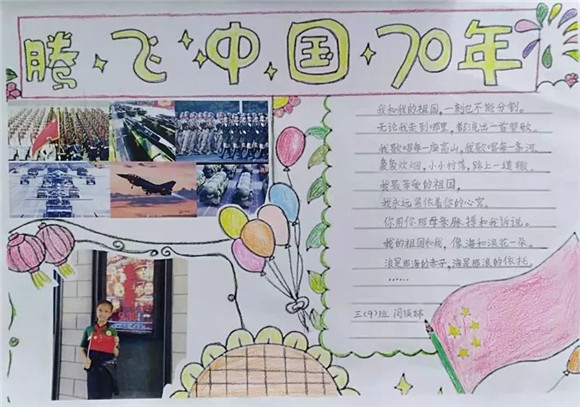 腾飞中国70年
我和我的祖国,一刻也不能分割。
无论我走到哪里,都流出一首赞歌。
我歌唱每一座高山,我歌唱每一条河。
袅袅炊烟,小小村落,路上一道辙。
我最亲爱的祖国,
我永远紧依着你的心窝。
你用你那母亲脉搏和我诉说。
我的祖国和我,像海和浪花一朵。
浪是那海的赤子,海是那浪的依托。
……
三(9)班 闫